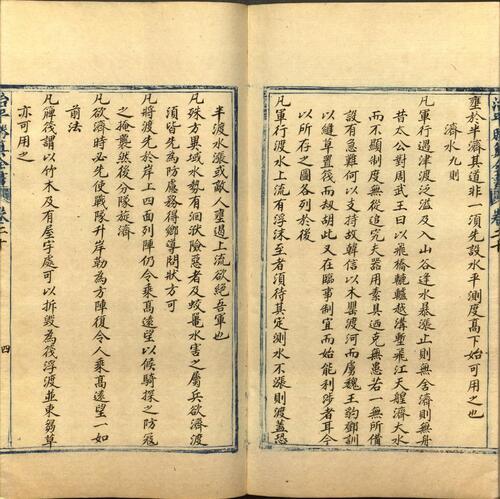 壅於半濟其道非一須先設水平測度高下始可用之也
濟水九則
凡軍行過津渡泛溢及入山谷逢水暴漲止則無舍濟則無舟
昔太公對周武王曰以飛橋轆轤越溝塹飛江天艎濟大水
而不顯制度無從追究夫器用素具過克無患若一無所備
設有急難何以支持故韓信以木罌渡河而虜魏王豹鄧訓
以縫革置筏而刼胡此又在臨事制宜而始能利涉者耳今
以所存之圖各列於後
凡軍行渡水上流有浮沫至者須待其定測水不漲則渡蓋恐
半渡水漲或敵人壅遏上流欲絕吾軍也
凡殊方異域水勢有洄洑險惡者及蛟鼉水害之屬兵欲濟渡
須皆先為防慮務得鄉導問狀方可
凡將渡先於岸上四面列陣仍令乘高遠望以候騎探之防寇
之掩襲然後分隊旋濟
凡欲濟時必先使戰隊升岸勒為方陣復令人乘高遠望一如
前法
凡簰筏謂以竹木及有屋宇處可以拆毀為筏浮渡並束芻草
亦可用之
卷二十
四